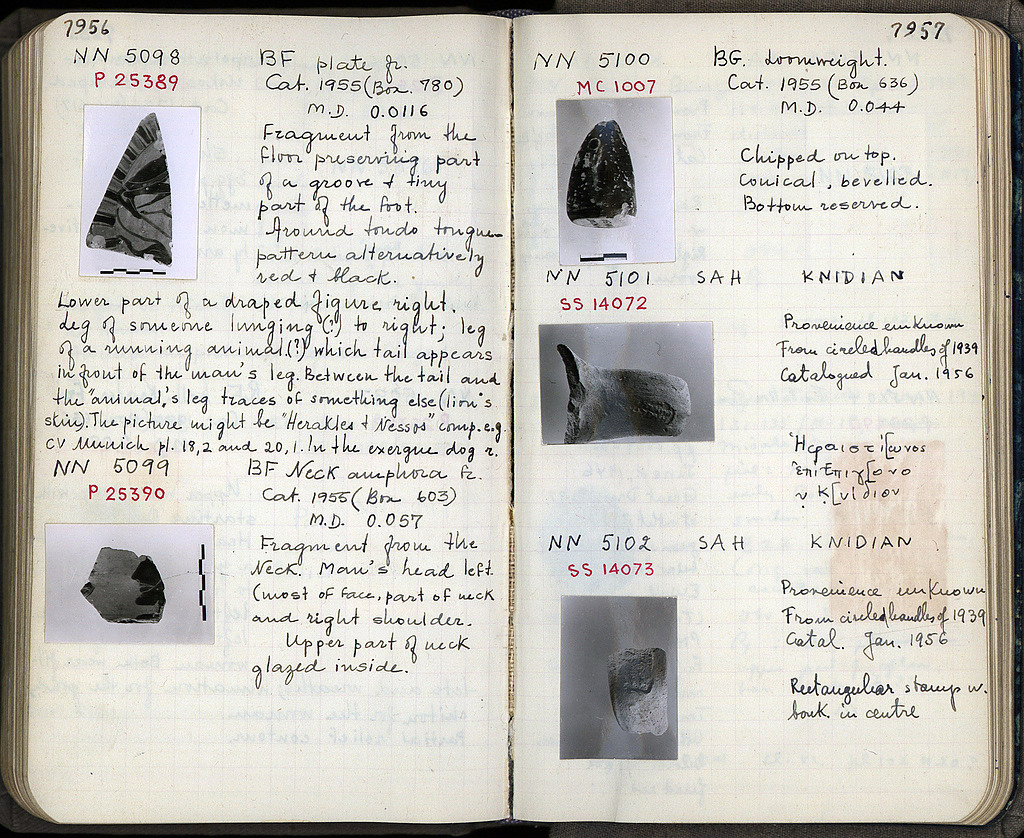 7956
NN 5098
P 25389
BF plate fr.
Cat. 1955 (Box 780)
M.D. 0.0116
Fragment from the
floor preserving part
of a groove & tiny
part of the foot.
Around tondo tongue-
pattern alternatively
red & black.
Lower part of a draped figure right.
Leg of someone lunging (?) to right; leg
of a running animal (?) which tail appears
in front of the man's leg. Between the tail and
the "animal's leg traces of something else (lion's
skin). The picture might be "Herakles & Nessos" comp. e.g.
CV Munich pl. 18,2 and 20,1. In the exergue dog r.
NN 5099
P 25390
BF Neck amphora fr.
Cat. 1955 (Box 603)
M.D. 0.057
Fragment from the
Neck. Man's head left.
(most of face, part of neck
and right shoulder.
Upper part of neck
glazed inside.
7957
NN 5100
MC 1007
BG. Loomweight.
Cat. 1955 (Box 636)
M.D. 0.044
Chipped on top.
Conical, bevelled.
Bottom reserved.
NN 5101 SAH KNIDIAN
SS 14072
Provenience unknown
From circled handles of 1939
Catalogued Jan. 1956
Ἡφαιστίωνος
ἐπὶ Ἐπιγ[όνο
υ Κ[νίδιον
NN 5102 SAH KNIDIAN
SS 14073
Provenience unknown
From circled handles of 1939
Catal. Jan. 1956
Rectangular stamp w.
bouk. in centre